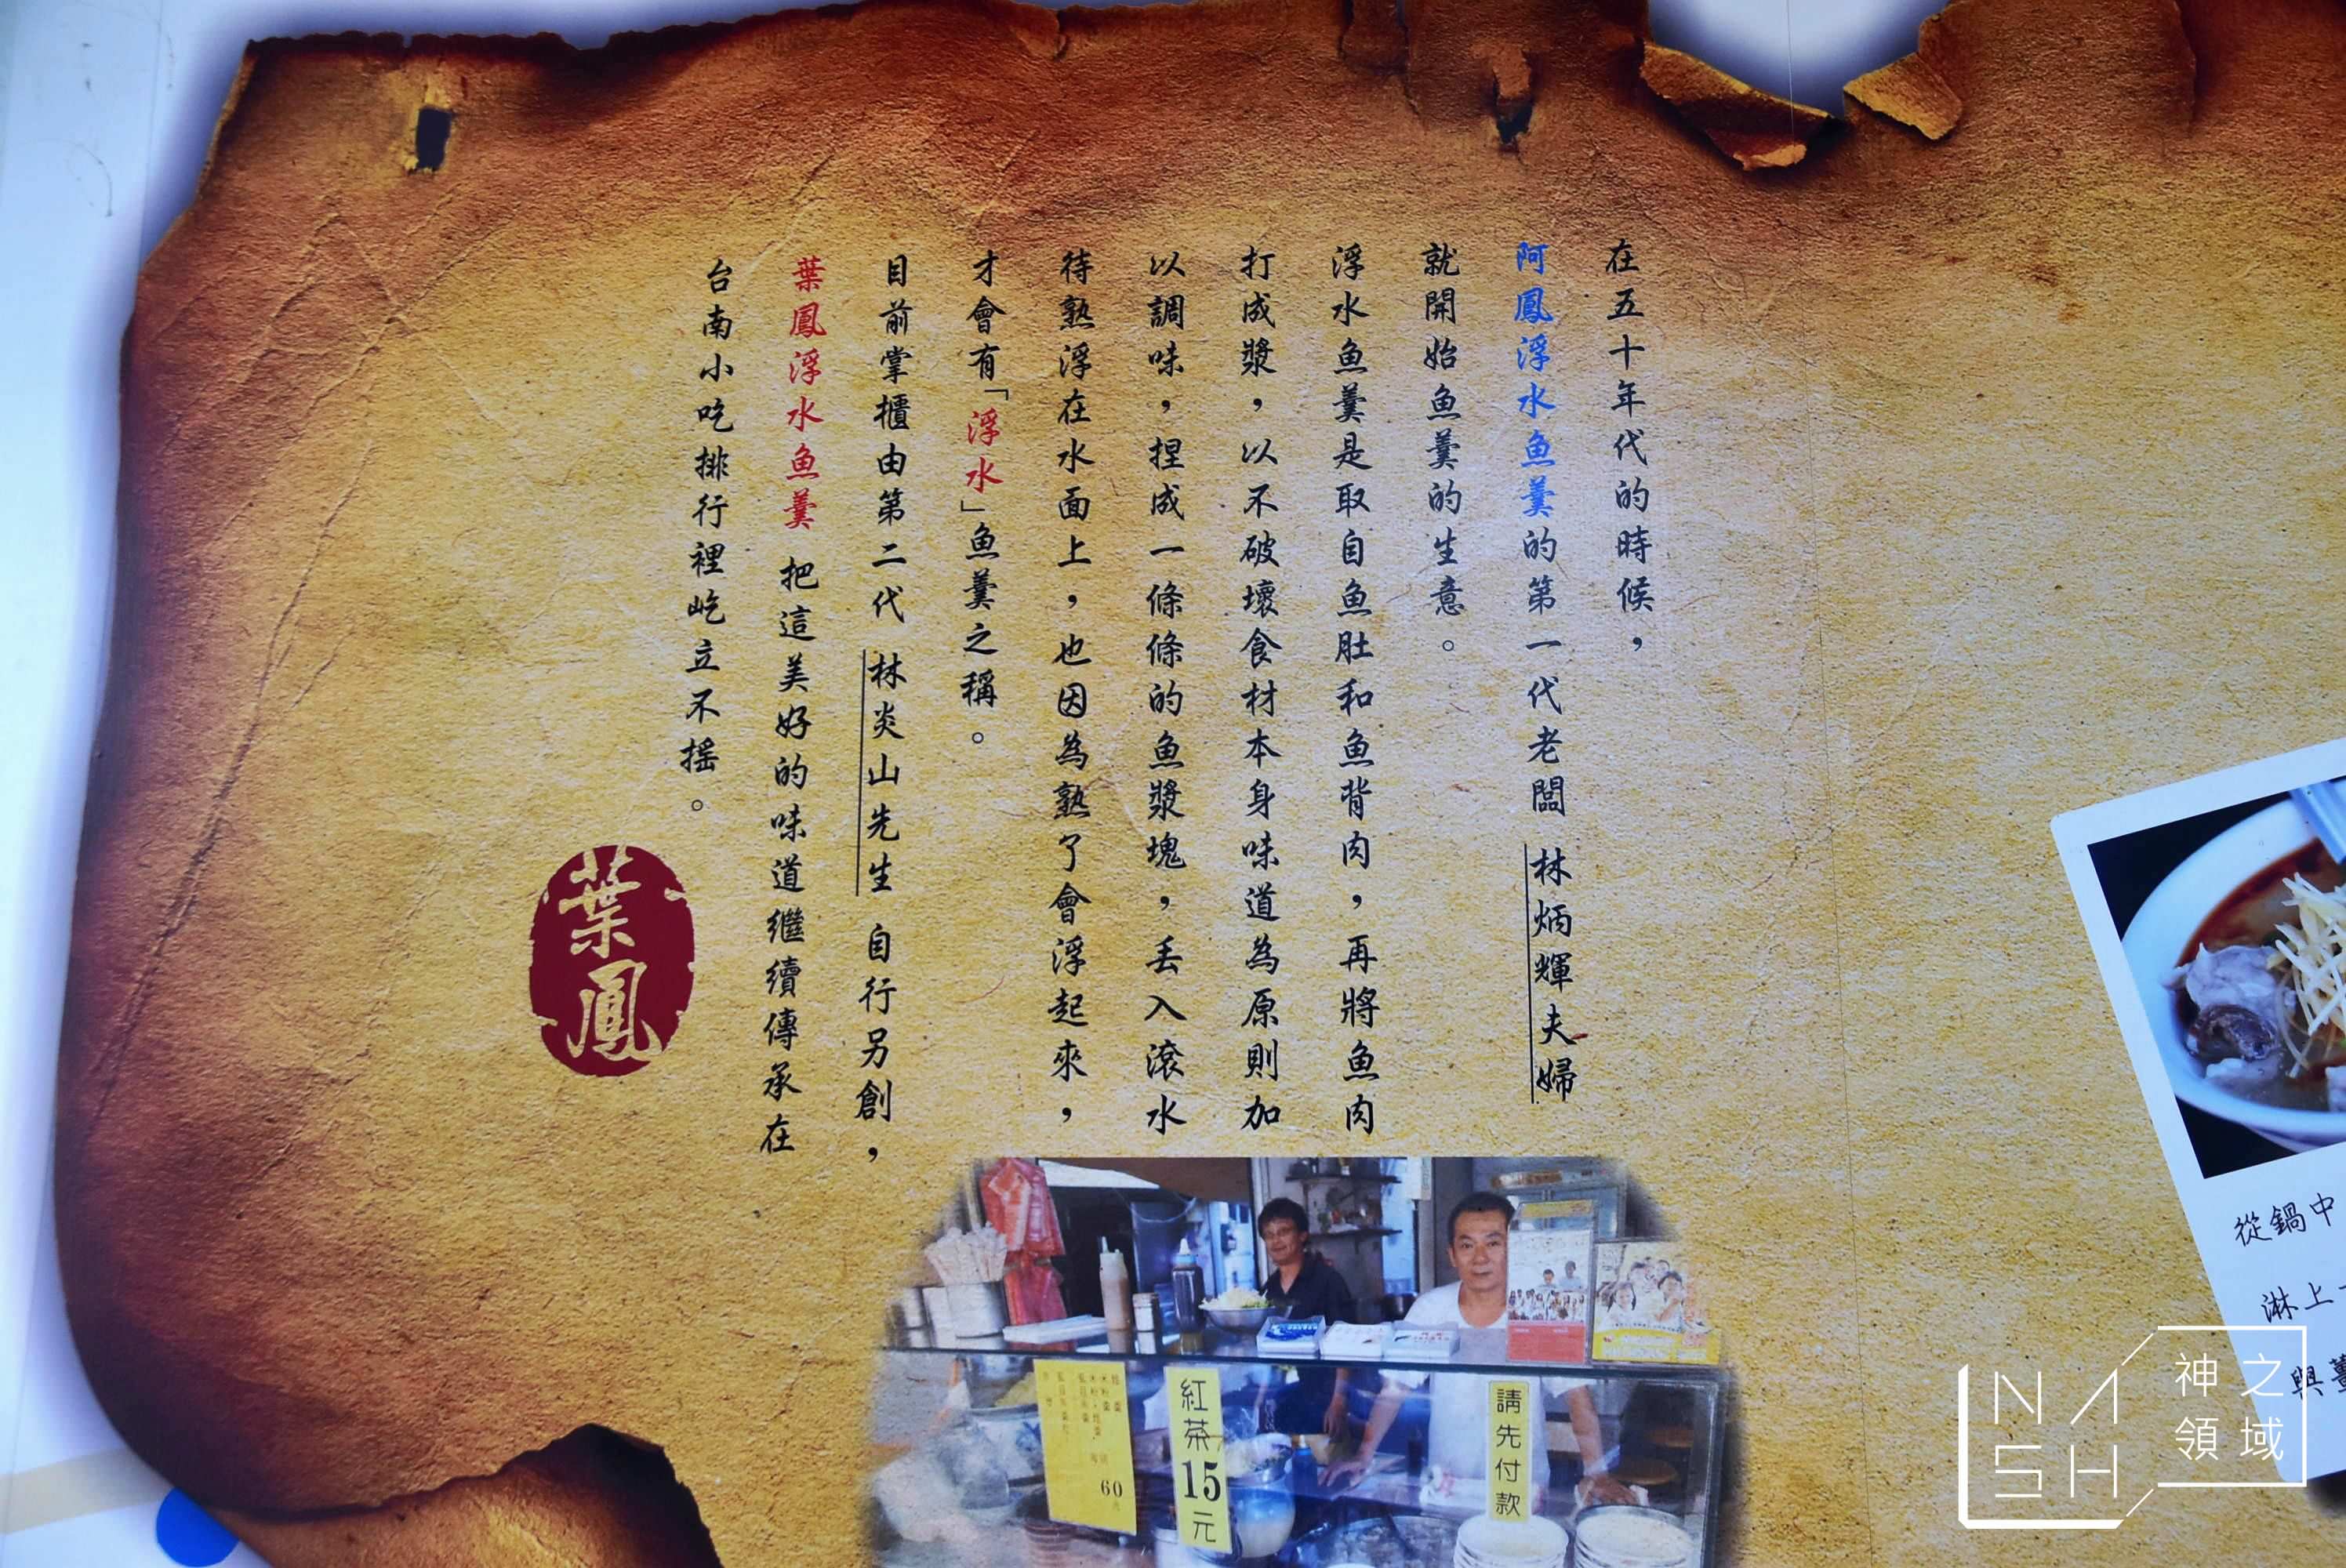 在五十年代的時候，
阿鳳浮水魚羹的第一代老闆 林炳輝夫婦
就開始魚羹的生意。
浮水魚羹是取自魚肚和魚背肉，再將魚肉
打成漿，以不破壞食材本身味道為原則加
以調味，捏成一條條的魚漿塊，丟入滾水
待熟浮在水面上，也因為熟了會浮起來，
才會有「浮水」魚羹之稱。
目前掌櫃由第二代 林炎山先生 自行另創，
葉鳳浮水魚羹 把這美好的味道繼續傳承在
台南小吃排行裡屹立不搖。
葉鳳
請先付款
紅茶15元
60
從鍋中
淋上
與薑
NASH
神之
領域